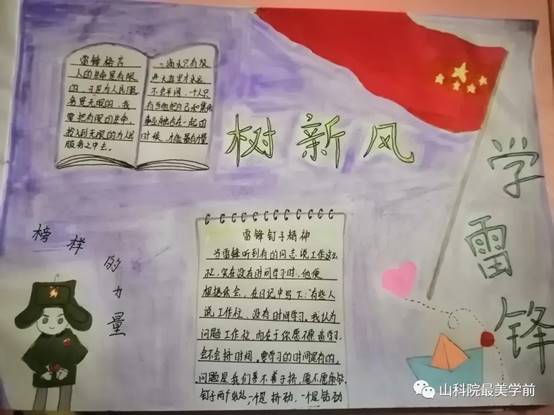 雷锋格言
人的生命是有限
的，可是为人民服
务是无限的，我
要把有限的生命，
投入到无限的为人民
服务之中去。
一滴水只有放
进大海里才永远
不会干涸，一个人只
有当他把自己和集体
事业融合在一起的
时候，才能最有力量
树新风
学雷锋
榜样的力量
雷锋钉子精神
当雷锋听到有的同志说工作
忙，实在没有时间学习时，他便
在日记中写下："有些人
说工作忙、没有时间学习。我认为
问题工作忙，而在于你愿不愿意学习，
会不会挤时间。要学习的时间是有的，
问题是我们善不善于挤，愿不愿意钻
钉子两个长处：一个是挤劲，一个是钻劲
山科院最美学前